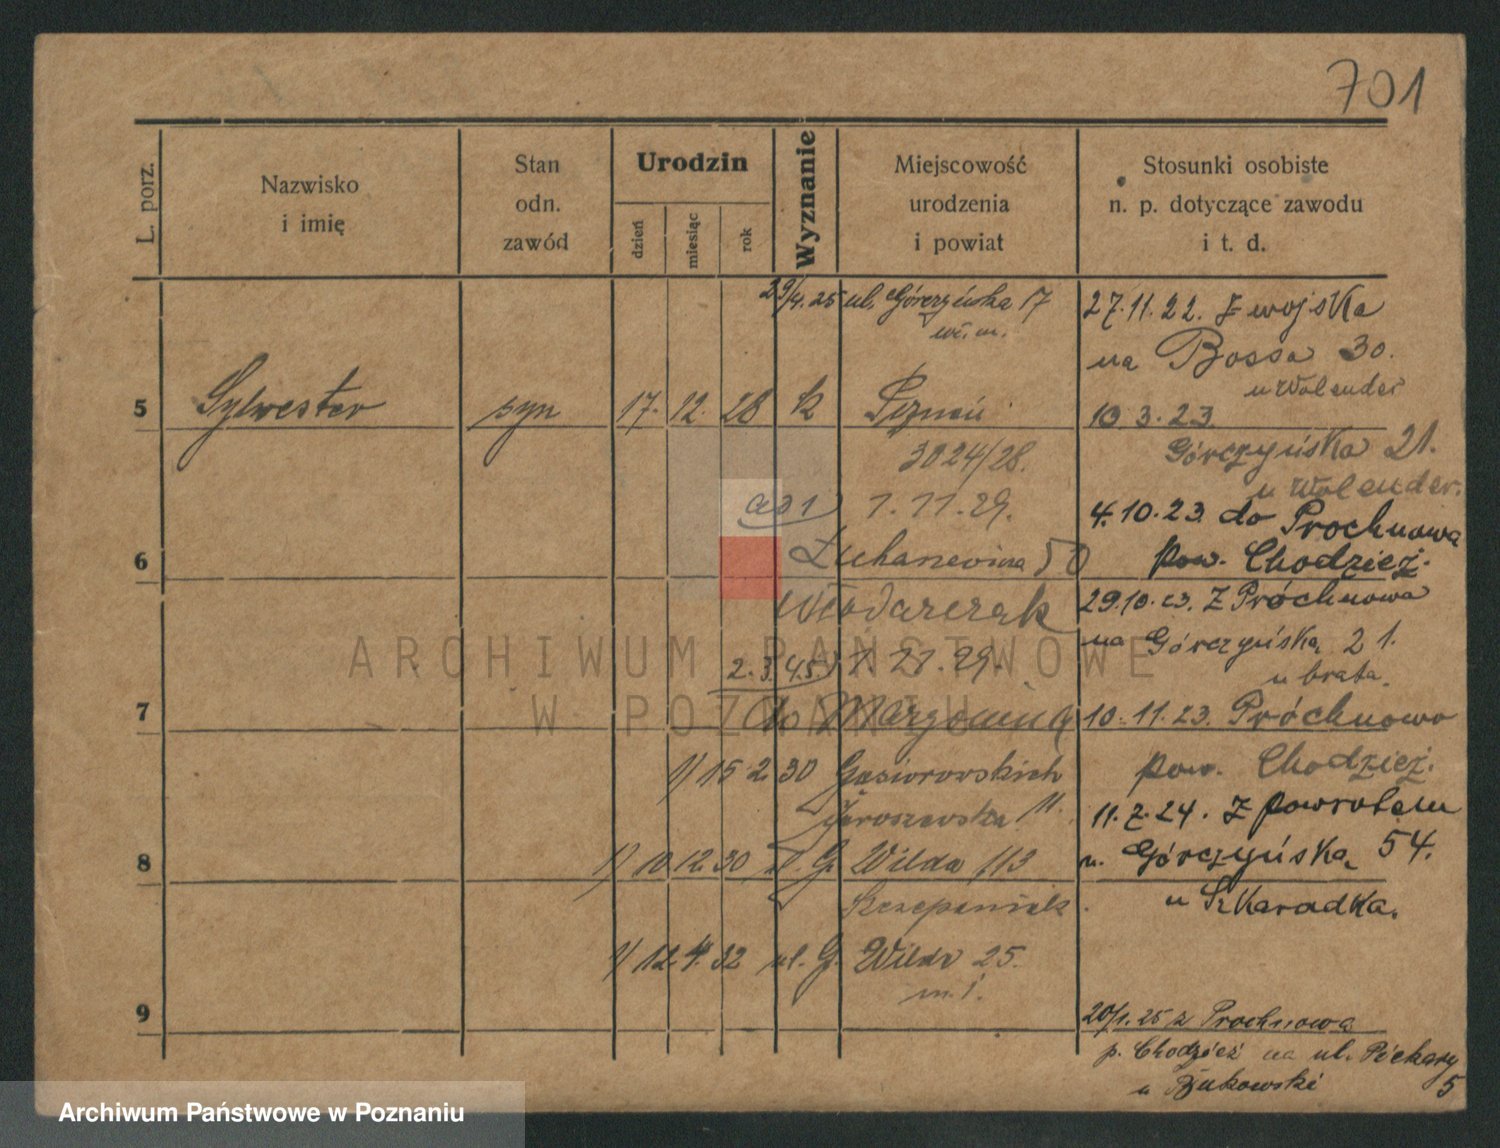 701
L. porz.
Nazwisko
i imię
Stan
odn.
zawód
Urodzin
dzień
miesiąc
rok
Wyznanie
Miejscowość
urodzenia
i powiat
Stosunki osobiste
n. p. dotyczące zawodu
i t. d.
29/4. 25 ul. Górczyńska 17
5 Sylwester syn 17. 12. 28 k Poznań
3024/28.
ad 1) 1. 11. 29.
6
50
Włodarczak
2. 3. 4. 5.)
7 do Margonina
1) 15 2 30 Gąsiorowskich
Jaroszewska 11.
8 1) 10 12 30 ul. G. Wilda 113
Szczepaniak.
1) 12 4. 32 ul. G. Wilda 25.
m. 1.
9
27. 11. 22. z wojska
na Bossa 30.
u Wolender
10. 3. 23.
Górczyńska 21.
u Wolender.
4. 10. 23 do Prochnowa
pow. Chodzież.
29. 10. 23. z Próchnowa
na Górczyńską 21.
u brata.
10. 11. 23. Próchnowo
pow. Chodzież.
11. 7. 24. z powrotem
u. Górczyńska 54.
u Skaradka.
20/1. 25 z Prochnowa
p. Chodzież na ul. Piekary
u Bukowski 5
ARCHIWUM PAŃSTWOWE
W POZNANIU
Archiwum Państwowe w Poznaniu